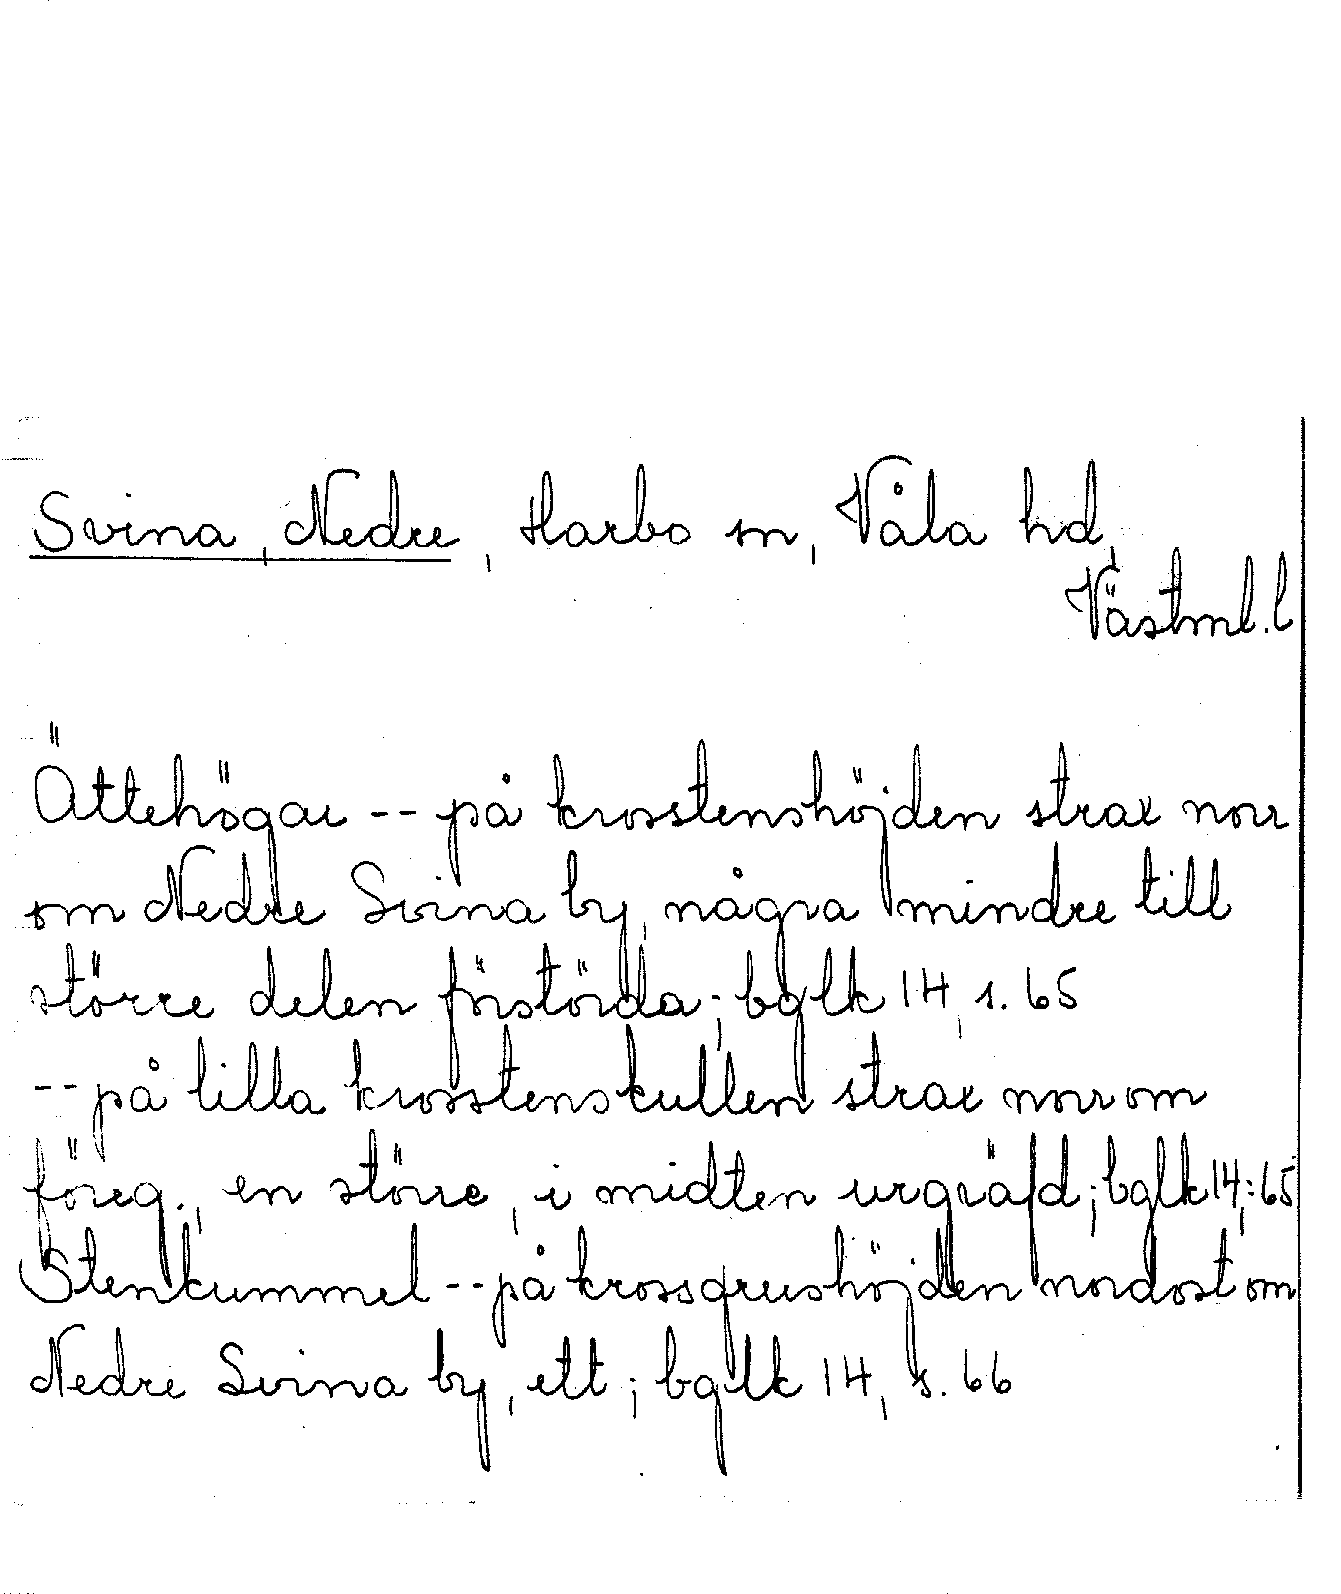 Svina, Nedre, Harbo sn, Våla hd,
Västml. l
Ättehögar -- på krosstenshöjden strax norr
om Nedre Svina by, några mindre till
större delen förstörda; bglk 14, s. 65
-- på lilla krosstenskullen strax norr om
föreg., en större, i midten urgräfd; bglk 14,: 65
Stenkummel -- på krossgrushöjden nordost om
Nedre Svina by, ett; bglk 14, s. 66